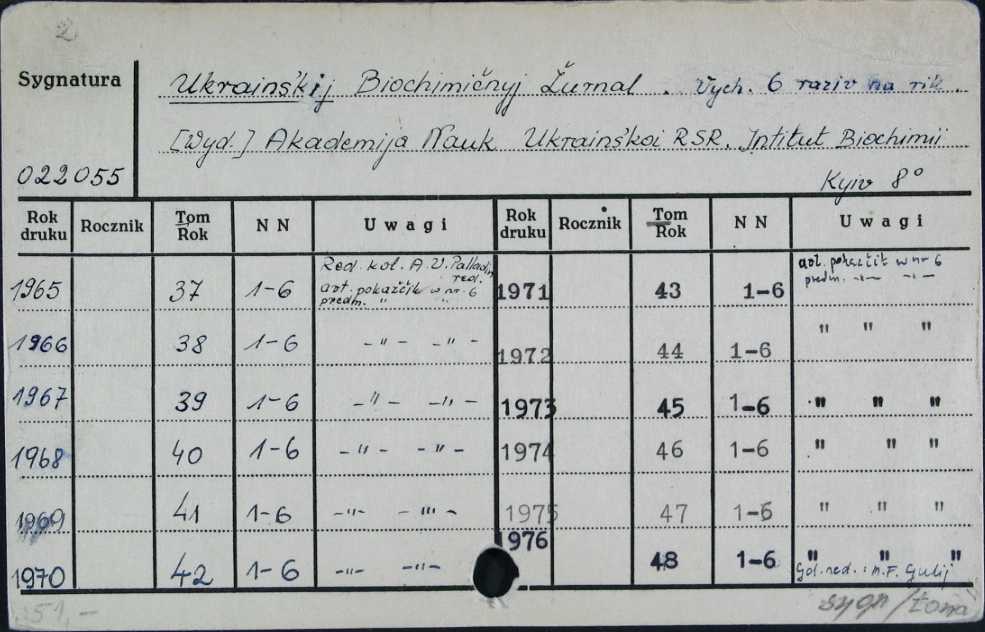 2
Sygnatura
Ukrainśkij Biochimičnyj Žurnal. Vych. 6 raziv na rik.
[Wyd.] Akademija Nauk Ukrainśkoi RSR. Intitut Biochimii
022055
Kyiv 8°
Rok druku Rocznik Tom Rok NN Uwagi Rok druku Rocznik Tom Rok NN Uwagi
1965 37 1-6 Red. kol. A. V. Palladin red. avt. pokažčik w nr 6 predm. " " 1971 43 1-6 avt. pokažčik w nr 6 predm. -"- -"-
1966 38 1-6 -"- -"- 1972 44 1-6 " " "
1967 39 1-6 -"- -"- 1973 45 1-6 " " "
1968 40 1-6 -"- -"- 1974 46 1-6 " " "
1969 41 1-6 -"- -"- 1975 47 1-6 " " "
1970 42 1-6 -"- -"- 1976 48 1-6 " " " Gol. red.: M. F. Gulij
51,-
sygn/